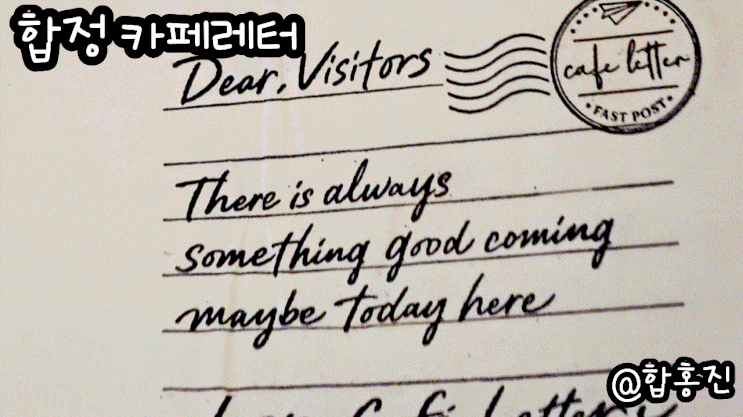 합정 카페레터
Dear, Visitors
cafe letter
• FAST POST •
There is always
something good coming
maybe today here
@합홍진